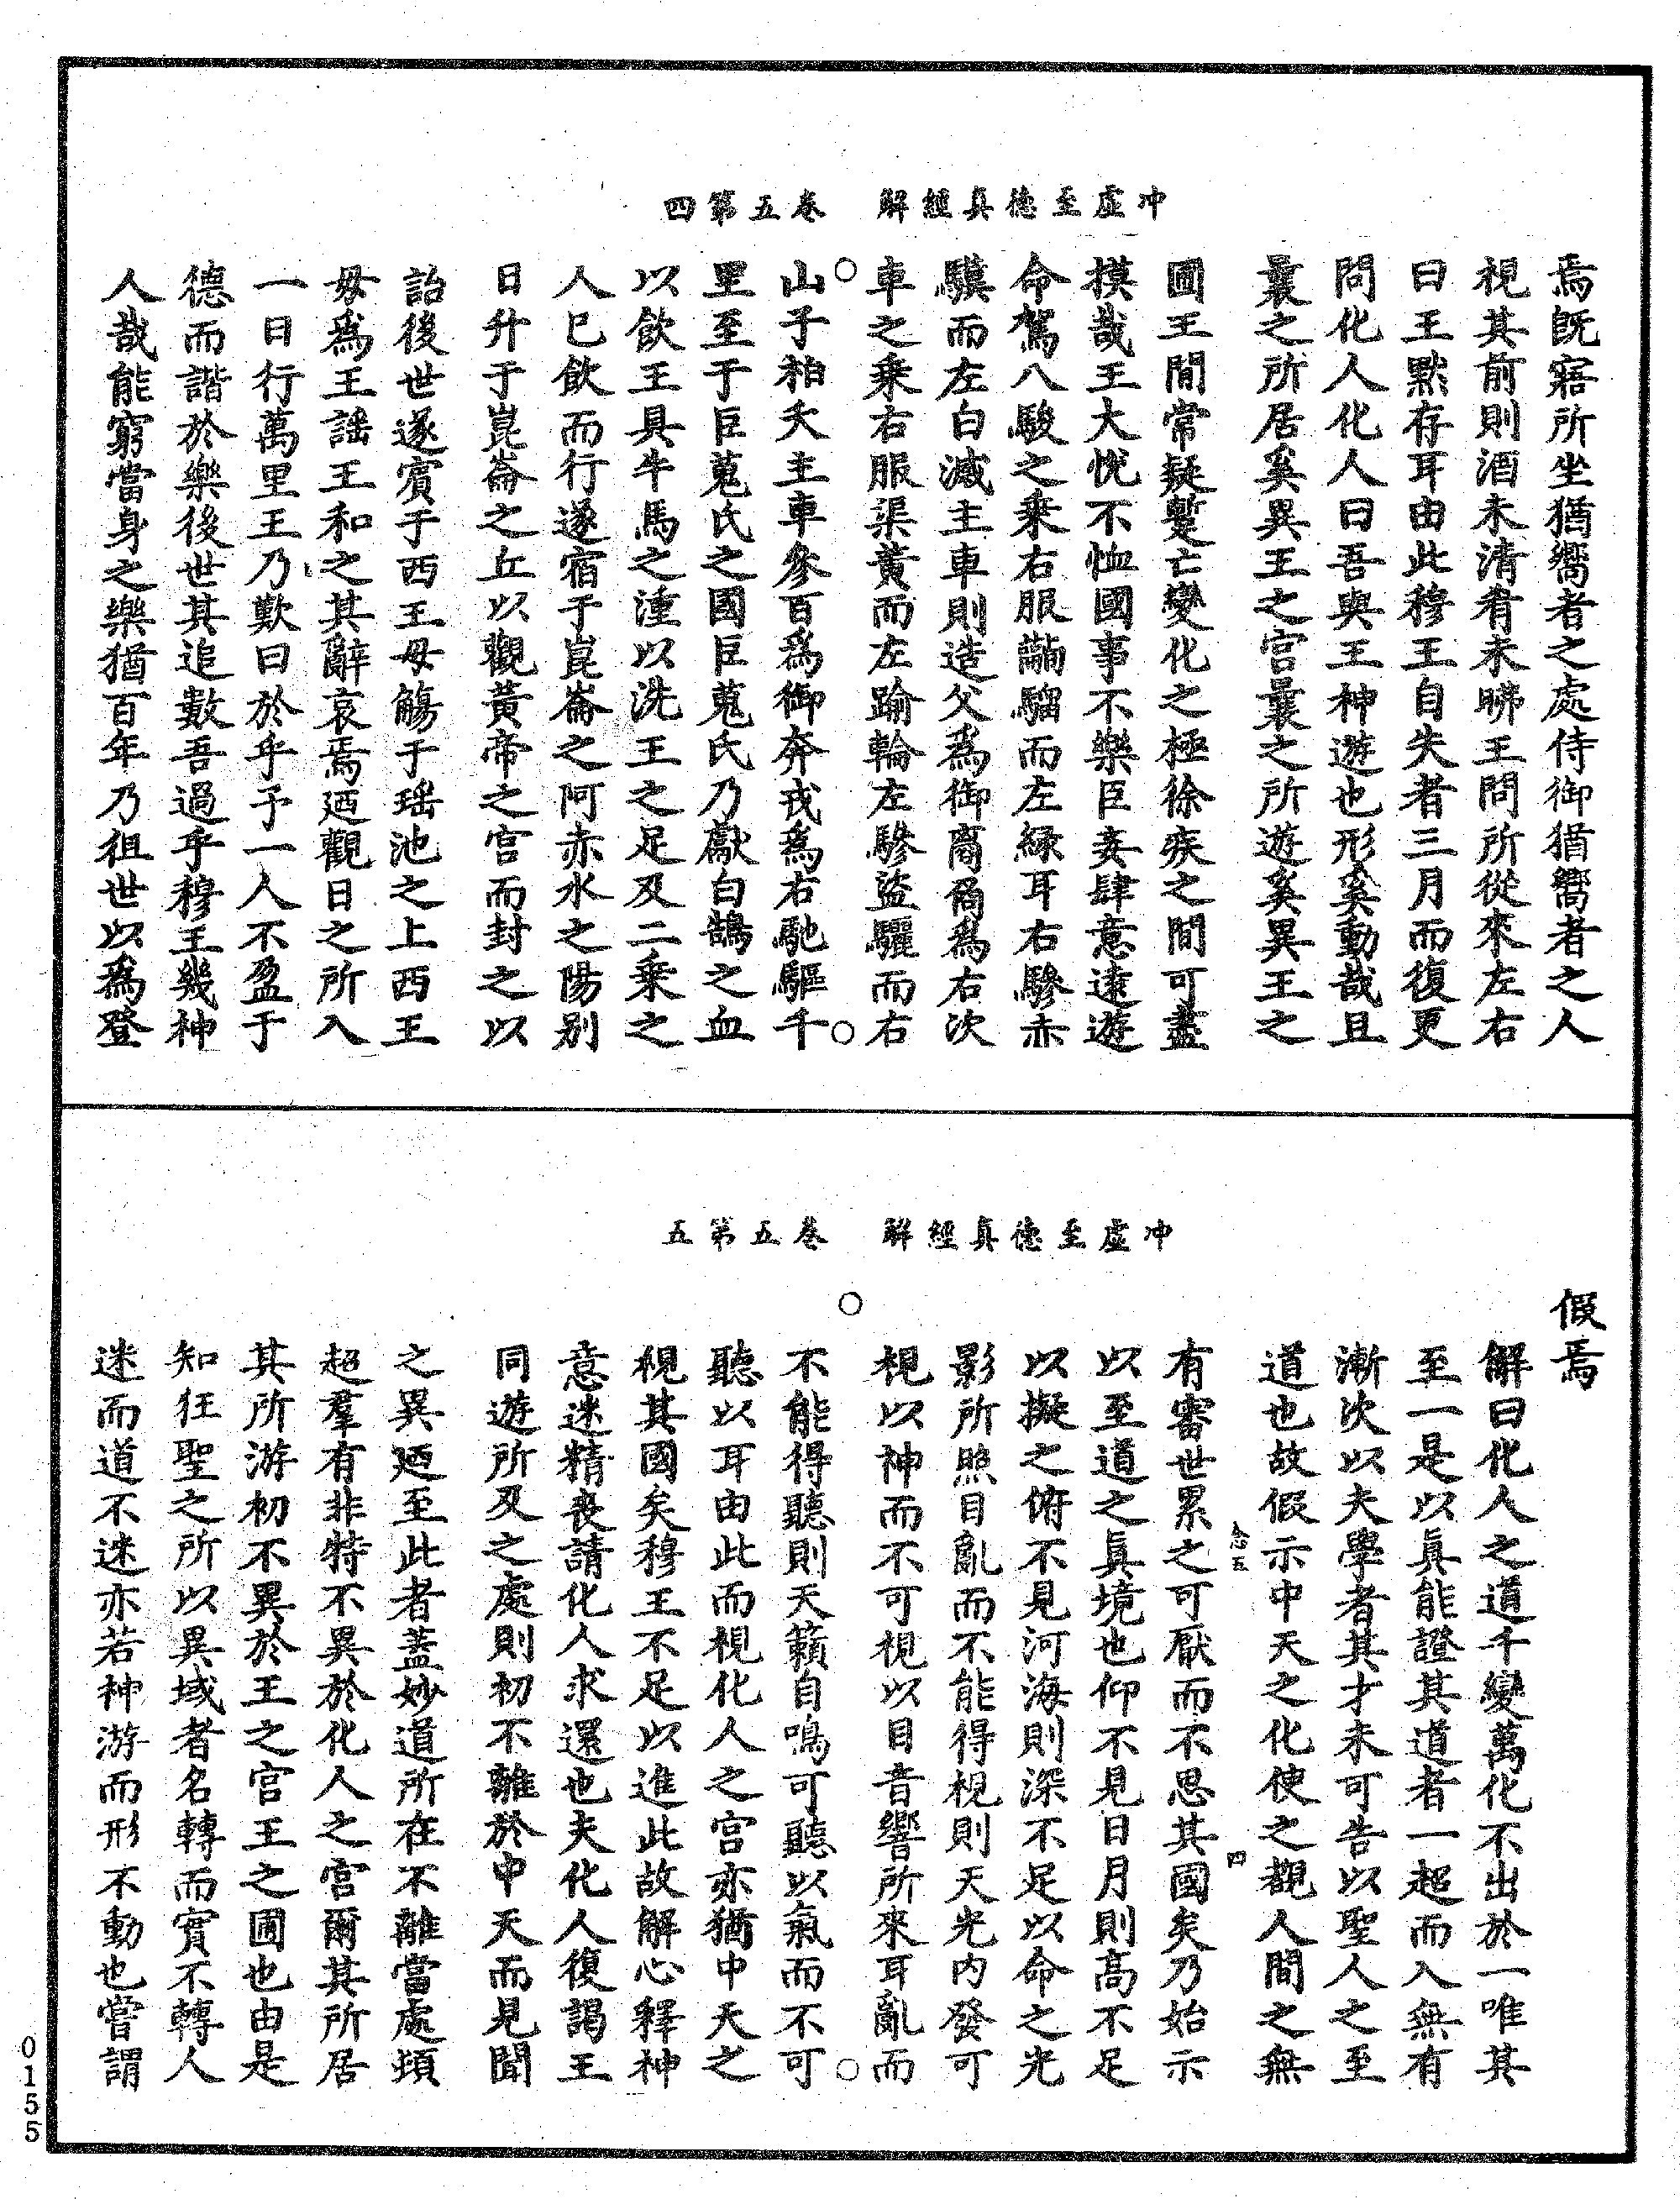 冲虛至德真經解　卷五第四
焉既寤所坐猶嚮者之處侍御猶嚮者之人
視其前則酒未清肴未昲王問所從來左右
曰王默存耳由此穆王自失者三月而復更
問化人化人曰吾與王神遊也形奚動哉且
曩之所居奚異王之宮曩之所遊奚異王之
圃王間常疑蹔亡變化之極徐疾之間可盡
摸哉王大悅不恤國事不樂臣妾肆意遠遊
命駕八駿之乘右服驊騮而左綠耳右驂赤
驥而左白㵐主車則造父為御𧯆𠧪為右次
車之乘右服渠黃而左踰輪左驂盜驪而右
山子柏夭主車參百為御奔戎為右馳驅千
里至于巨蒐氏之國巨蒐氏乃獻白鵠之血
以飲王具牛馬之湩以洗王之足及二乘之
人已飲而行遂宿于崑崙之阿赤水之陽別
日升于崑崙之丘以觀黃帝之宮而封之以
詒後世遂賓于西王母觴于瑤池之上西王
母為王謠王和之其辭哀焉迺觀日之所入
一日行萬里王乃歎曰於乎予一人不盈于
德而諧於樂後世其追數吾過乎穆王幾神
人哉能窮當身之樂猶百年乃徂世以為登
冲虛至德真經解　卷五第五
假焉
解曰化人之道千變萬化不出於一唯其
至一是以真能證其道者一超而入無有
漸次以夫學者其才未可告以聖人之至
道也故假示中天之化使之觀人間之無
念五　四
有審世累之可厭而不思其國矣乃始示
以至道之真境也仰不見日月則高不足
以擬之俯不見河海則深不足以命之光
影所照目亂而不能得視則天光內發可
視以神而不可視以目音響所來耳亂而
不能得聽則天籟自鳴可聽以氣而不可
聽以耳由此而視化人之宮亦猶中天之
視其國矣穆王不足以進此故解心釋神
意迷精喪請化人求還也夫化人復謁王
同遊所及之處則初不離於中天而見聞
之異廼至此者蓋妙道所在不離當處頓
超羣有非特不異於化人之宮爾其所居
其所游初不異於王之宮王之圃也由是
知狂聖之所以異域者名轉而實不轉人
迷而道不迷亦若神游而形不動也嘗謂
0155